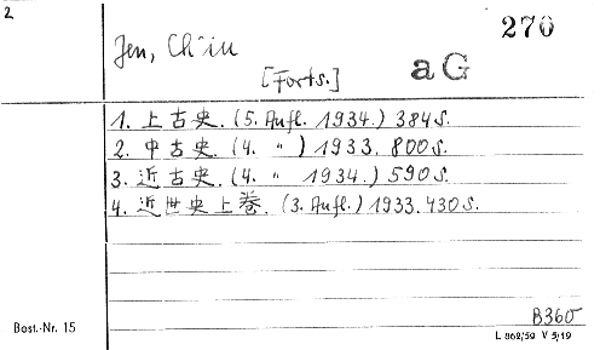 2
270
Jen, Ch'iu
[Forts.]
aG
1. 上古史. (5. Aufl. 1934.) 384S.
2. 中古史. (4. " ) 1933. 800S.
3. 近古史. (4. " 1934.) 590S.
4. 近世史上卷. (3. Aufl.) 1933. 430S.
B360
Best.-Nr. 15
L 862/59 V 5/19